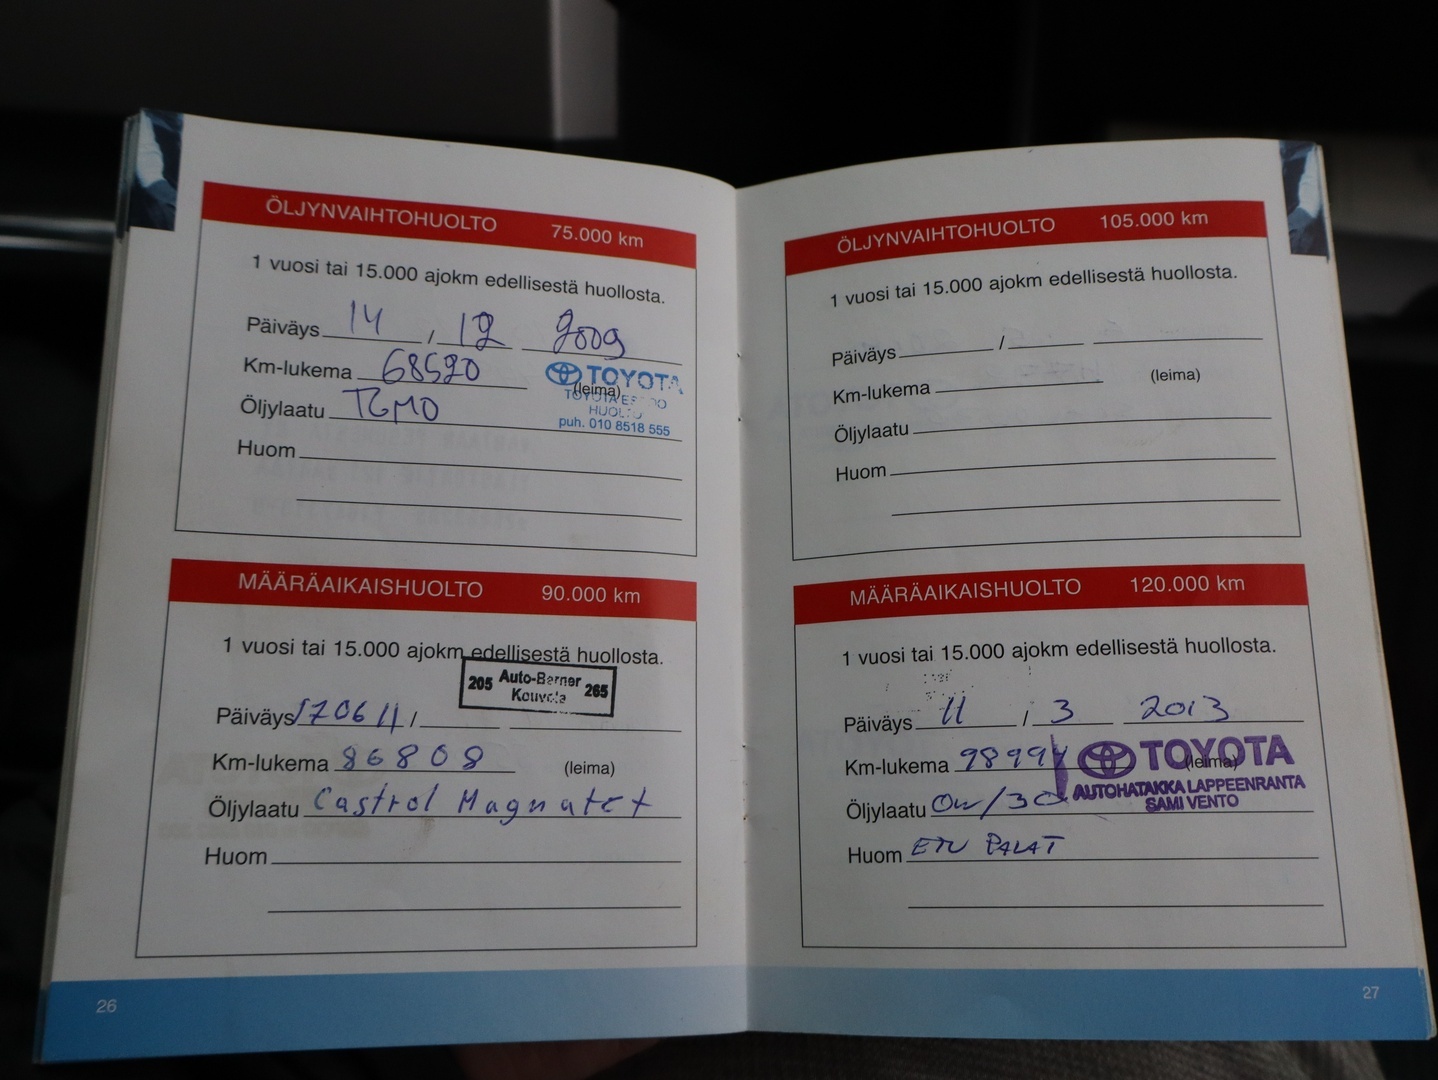 ÖLJYNVAIHTOHUOLTO 75.000 km
1 vuosi tai 15.000 ajokm edellisestä huollosta.
Päiväys 14 / 12 2009
Km-lukema 68520
TOYOTA
(leima)
TOYOTA ESPOO
HUOLTO
puh. 010 8518 555
Öljylaatu TGMO
Huom
MÄÄRÄAIKAISHUOLTO 90.000 km
1 vuosi tai 15.000 ajokm edellisestä huollosta.
205 Auto-Berner 265
Kouvola
Päiväys 170611 /
Km-lukema 86808 (leima)
Öljylaatu Castrol Magnatet
Huom
26
ÖLJYNVAIHTOHUOLTO 105.000 km
1 vuosi tai 15.000 ajokm edellisestä huollosta.
Päiväys /
Km-lukema (leima)
Öljylaatu
Huom
MÄÄRÄAIKAISHUOLTO 120.000 km
1 vuosi tai 15.000 ajokm edellisestä huollosta.
Päiväys 11 / 3 2013
Km-lukema 98994 (leima)
TOYOTA
AUTOHATAKKA LAPPEENRANTA
SAMI VENTO
Öljylaatu 0w/30
Huom ETU PALAT
27